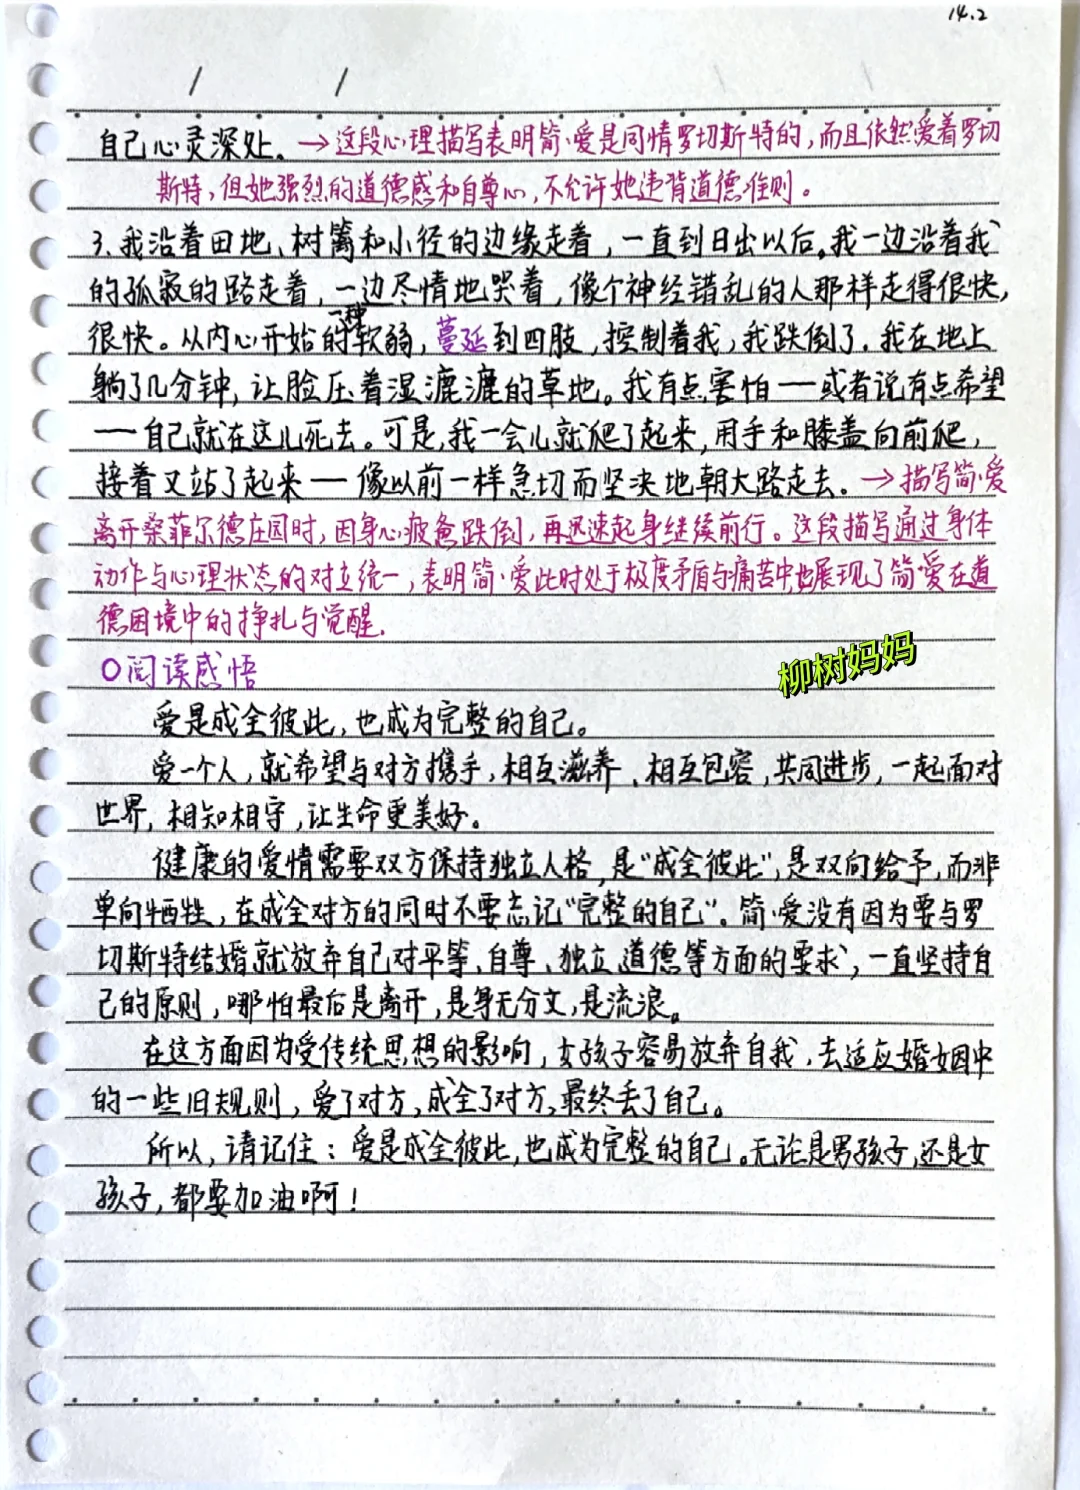 14.2
自己心灵深处。→这段心理描写表明简·爱是同情罗切斯特的,而且依然爱着罗切
斯特,但她强烈的道德感和自尊心,不允许她违背道德准则。
3、我沿着田地、树篱和小径的边缘走着,一直到日出以后。我一边沿着我
的孤寂的路走着,一边尽情地哭着,像个神经错乱的人那样走得很快,
很快。从内心开始的一种软弱,蔓延到四肢,控制着我,我跌倒了。我在地上
躺了几分钟,让脸压着湿漉漉的草地。我有点害怕——或者说有点希望
——自己就在这儿死去。可是,我一会儿就爬了起来,用手和膝盖向前爬,
接着又站了起来——像以前一样急切而坚决地朝大路走去。→描写简·爱
离开桑菲尔德庄园时,因身心疲惫跌倒,再迅速起身继续前行。这段描写通过身体
动作与心理状态的对立统一,表明简·爱此时处于极度矛盾与痛苦中,也展现了简·爱在道
德困境中的挣扎与觉醒.
○阅读感悟
柳树妈妈
爱是成全彼此,也成为完整的自己。
爱一个人,就希望与对方携手,相互滋养、相互包容,共同进步,一起面对
世界,相知相守,让生命更美好。
健康的爱情需要双方保持独立人格,是“成全彼此”,是双向给予,而非
单向牺牲,在成全对方的同时不要忘记“完整的自己”。简·爱没有因为要与罗
切斯特结婚就放弃自己对平等、自尊、独立、道德等方面的要求,一直坚持自
己的原则,哪怕最后是离开,是身无分文,是流浪。
在这方面因为受传统思想的影响,女孩子容易放弃自我,去适应婚姻中
的一些旧规则,爱了对方,成全了对方,最终丢了自己。
所以,请记住:爱是成全彼此,也成为完整的自己。无论是男孩子,还是女
孩子,都要加油啊!